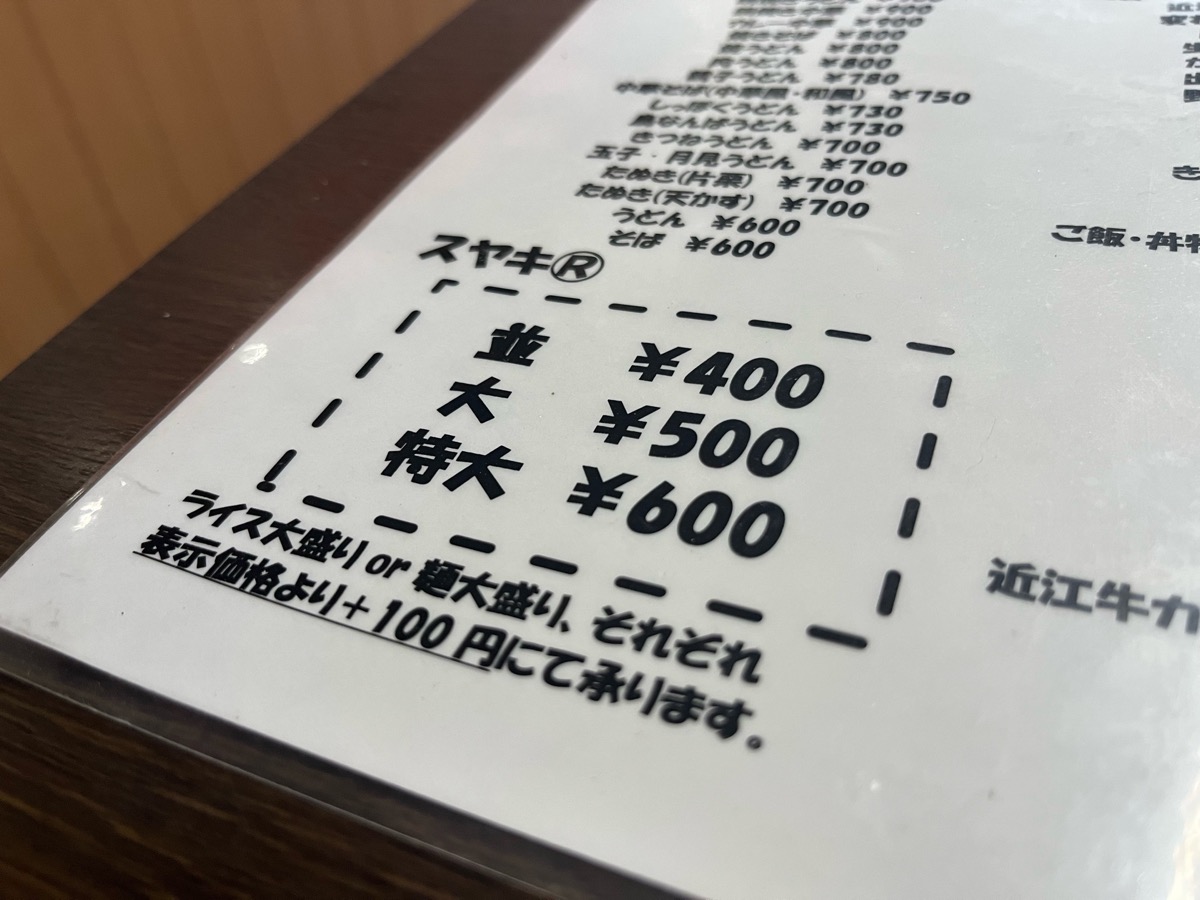 ¥800
¥800
肉うどん ¥800
親子うどん ¥780
中華そば(中華風・和風) ¥750
しっぽくうどん ¥730
鳥なんばうどん ¥730
きつねうどん ¥700
玉子・月見うどん ¥700
たぬき(片栗) ¥700
たぬき(天かす) ¥700
うどん ¥600
そば ¥600
スヤキ®
並 ¥400
大 ¥500
特大 ¥600
ライス大盛り or 麺大盛り、それぞれ
表示価格より+100円にて承ります。
ご飯・丼
近江牛カ